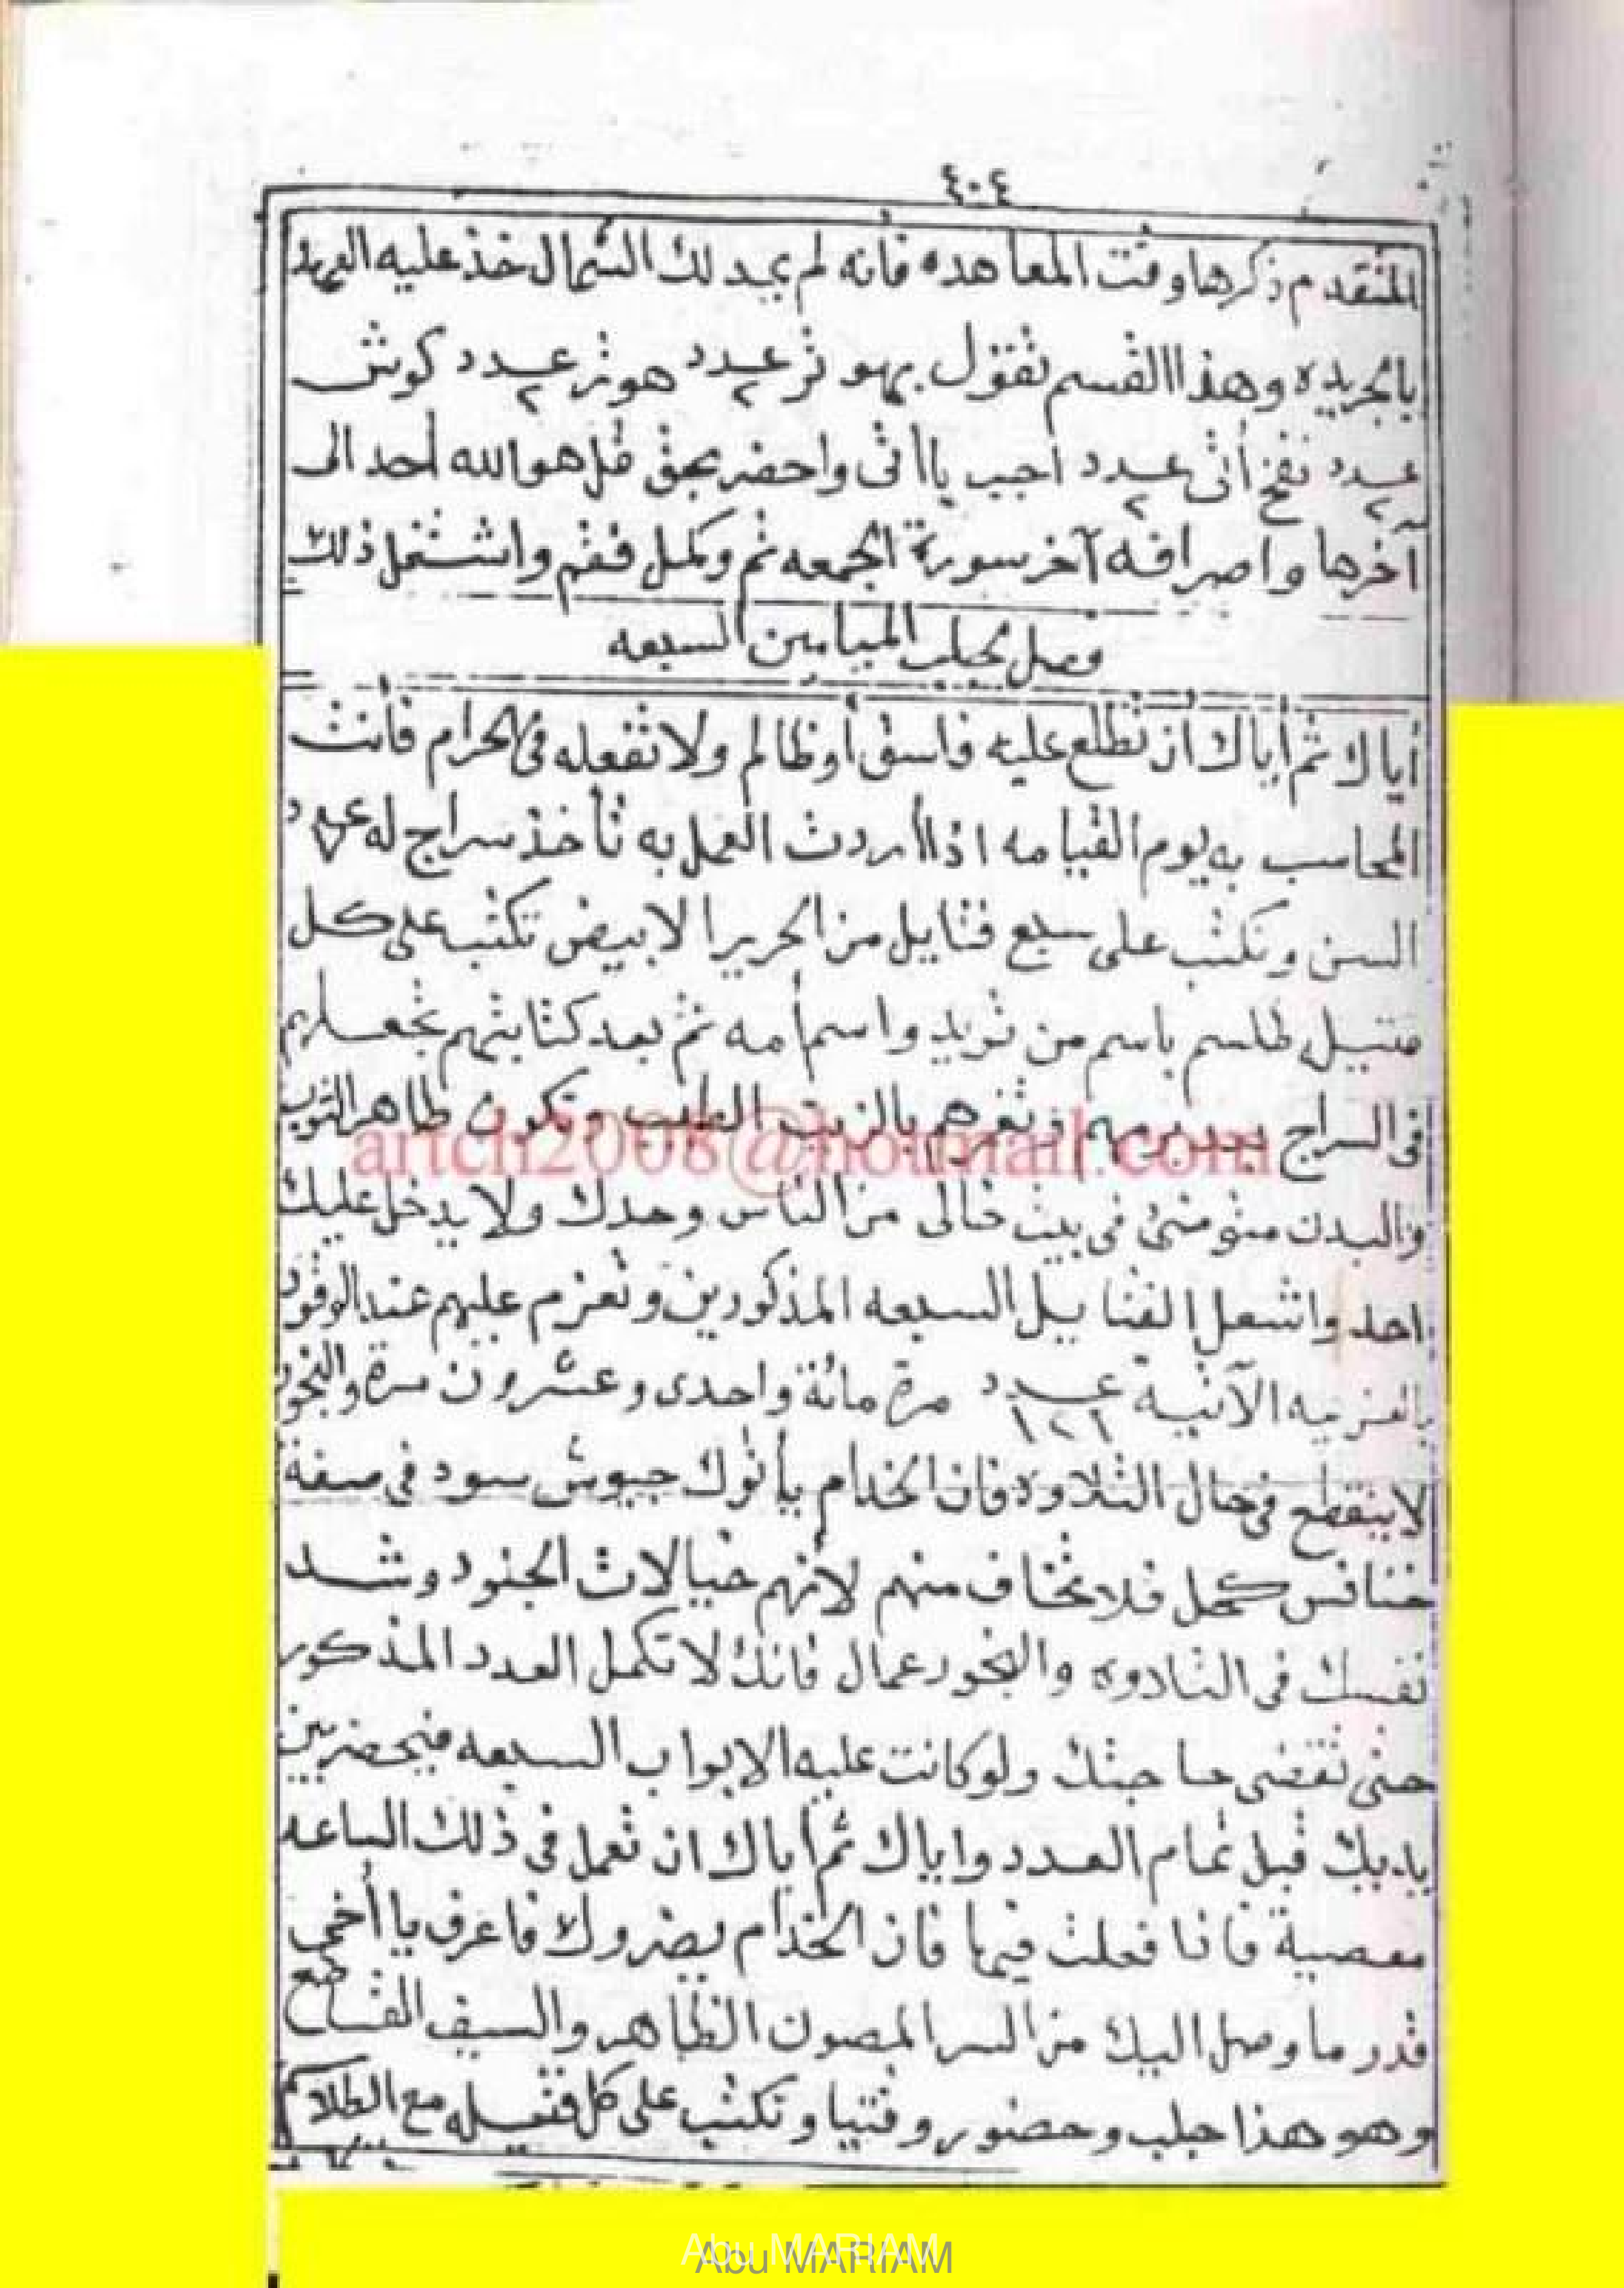 ٤٠٤
المتقدم ذكرها وقت المعاهده فأنه لم يمد لك الشمال خذ عليه العهد
بالجريده وهذا القسم تقول بهوتر عدد ٢ هوتر عدد ٢ كوش
عدد ٢ نفخ أتى عدد ٢ اجب يا اتى واحضر بحق قل هو الله أحد الى
آخرها واصرافه آخر سورة الجمعه تم وكمل ففهم واشتغل ذلك
فصل بجلب الميامين السبعه
أياك ثم أياك ان تطلع عليه فاسق أو ظالم ولا تفعله فى الحرام فأنت
المحاسب به يوم القيامه اذا أردت العمل به تأخذ سراج له
السن وتكتب على سبع فتايل من الحرير الابيض تكتب على كل
فتيل طلسم باسم من تريد واسم أمه ثم بعد كتابتهم تجعلهم
فى السراج بعد برمهم وتغرهم بالزيت الطيب وتكون طاهر الثوب
artch2008@hotmail.com
والبدن متوضئ فى بيت خالى من الناس وحدك ولا يدخل عليك
احد واشعل الفتايل السبعه المذكورين وتعزم عليهم عند الوقود
بالعزيمه الآتية عدد ١٢١ مرة مائة واحدى وعشرون مرة والبخور
لا ينقطع فى حال التلاوة فان الخدام يأتوك جيوش سود فى صفة
خنافس كحل فلا تخاف منهم لأنهم خيالات الجنود وشد
نفسك فى التلاوه والبخور عمال فانك لا تكمل العدد المذكور
حتى تقضى حاجتك ولو كانت عليه الابواب السبعه فيحضر بين
يديك قبل تمام العدد واياك ثم أياك ان تعمل فى ذلك الساعه
معصية فانا فعلت فيها فان الخدام يضروك فاعرف يا أخى
قدر ما وصل اليك من السر المصون الظاهر والسيف القاطع
وهو هذا جلب وحضور وفتيا وتكتب على كل فتيله مع الطلاسم
Abu MARIAM